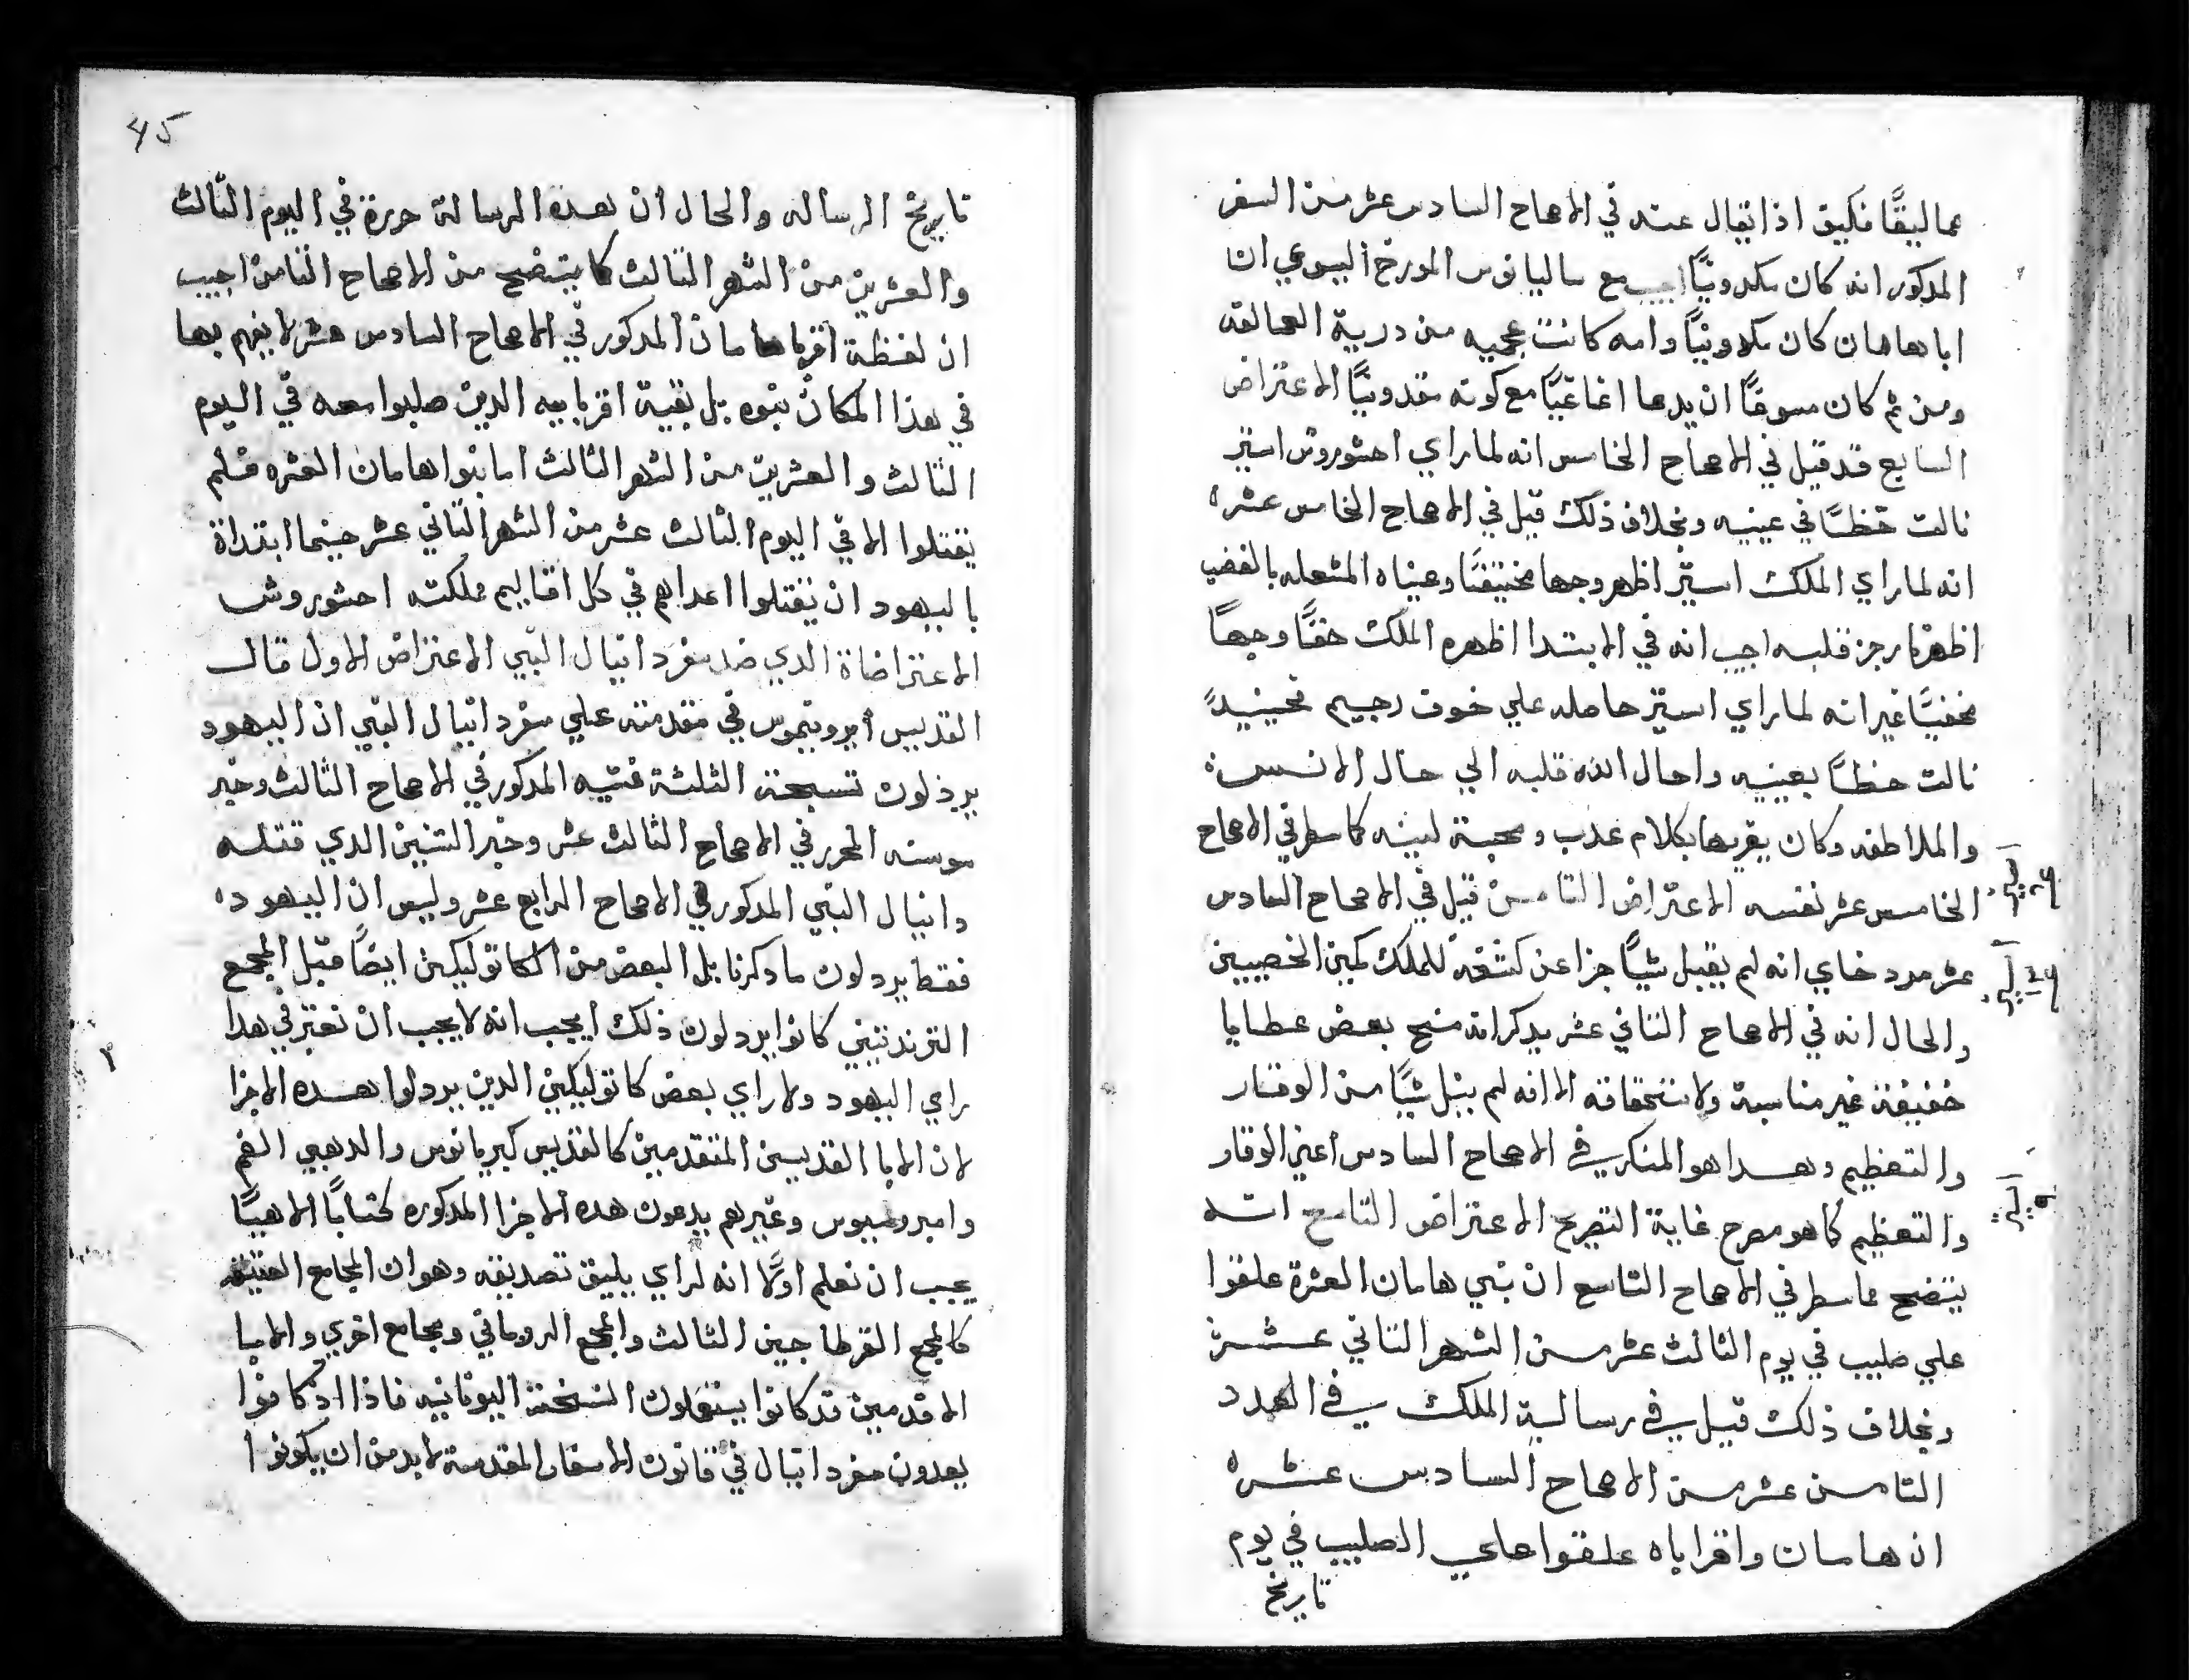 عماليقًا فكيق اذا يقال عنه في الاصحاح السادس عشر من السفر
المدكور انه كان مكدونيًا اجيب مع ساليانوس المورخ اليسوعي ان
ابا هامان كان مكدونيًا وامه كانت عجميه من درية العمالقه
ومن ثم كان مسوغًا ان يدعا اغاغيًا مع كونه مقدونيًا الاعتراض
السابع قد قيل في الاصحاح الخامس انه لما راي احشوروش استير
نالت حظًا في عينيه وبخلاف ذلك قيل في الاصحاح الخامس عشره
انه لما راي الملك استير اظهر وجها مخيفًا وعيناه المشعله بالغضب
اظهرتا رجز قلبه اجيب انه في الابتدا اظهره الملك حقًا وجهًا
مخفيًا غير انه لما راي استير حاصله علي خوف رجيم فحينيدٍ
نالت حظًا بعينيه واحال الله قلبه الي حال الانس
والملاطفه وكان يقريها بكلام عذب ومحبة لينه كما سطر في الاصحاح
الخامس عشر نفسه الاعتراض الثامن قيل في الاصحاح السادس
عشر مردخاي انه لم يقبل شيًا جزا عن كشفه للملك كمين الخصيين
والحال انه في الاصحاح الثاني عشر يدكر انه منح بعض عطايا
خفيفة غير مناسبة ولاستحقاقه الا انه لم ينل شيًا من الوقار
والتعظيم وهدا هو المنكر في الاصحاح السادس اعني الوقار
والتعظيم كما هو مصرح غاية التصريح الاعتراض التاسع انه
يتضح مما سطر في الاصحاح التاسع ان بني هامان العشرة علقوا
علي صليب في يوم الثالث عشر من الشهر الثاني عشر
وبخلاف ذلك قيل في رسالة الملك في العدد
الثامن عشر من الاصحاح السادس عشره
ان هامان واقراباه علقوا علي الصليب في يوم
تاريخ
45
تاريخ الرساله والحال ان هده الرسالة حررة في اليوم الثالث
والعشرين من الشهر الثالث كما يتضح من الاصحاح الثامن اجيب
ان لفظة اقربا هامان المدكور في الاصحاح السادس عشر لا يفهم بها
في هذا المكان بنوه بل بقية اقربايه الدين صلبوا معه في اليوم
الثالث والعشرين من الشهر الثالث اما بنوا هامان العشره فلم
يقتلوا الا في اليوم الثالث عشر من الشهر الثاني عشر حينما ابتداة
باليهود ان يقتلوا اعداهم في كل اقاليم مملكته احشوروش
الاعتراضاة الدي ضد سفر دانيال النبي الاعتراض الاول قال
القديس ايرونيموس في مقدمته علي سفر دانيال النبي ان اليهود
يرذلون تسبحة الثلثة فتيه المدكور في الاصحاح الثالث وخبر
سوسنه المحرر في الاصحاح الثالث عشر وخبر التنين الدي قتله
دانيال النبي المدكور في الاصحاح الرابع عشر وليس ان اليهود
فقط يردلون ما دكرنا بل البعض من الكاتوليكين ايضًا قبل المجمع
التريدنتيني كانوا يردلون ذلك ايجيب انه لا يجب ان نعتبر في هدا
راي اليهود ولا راي بعض كاتوليكين الدين يردلوا هده الاجزا
لان الابا القديسين المتقدمين كالقديس كبريانوس والدهبي الفم
وامبروسيوس وغيرهم يدعون هده الاجزا المدكوره كتابًا الاهيًا
يجب ان نعلم اولًا انه لراي يليق تصديقه وهو ان المجامع العتيقه
كالمجمع القرطاجيني الثالث والمجمع الروماني ومجامع اخري والابا
الاقدمين قد كانوا يستعملون النسخة اليونانيه فاذا اد كانوا
يعدون سفر دانيال في قانون الاسفار المقدسة لا بد من ان يكونوا